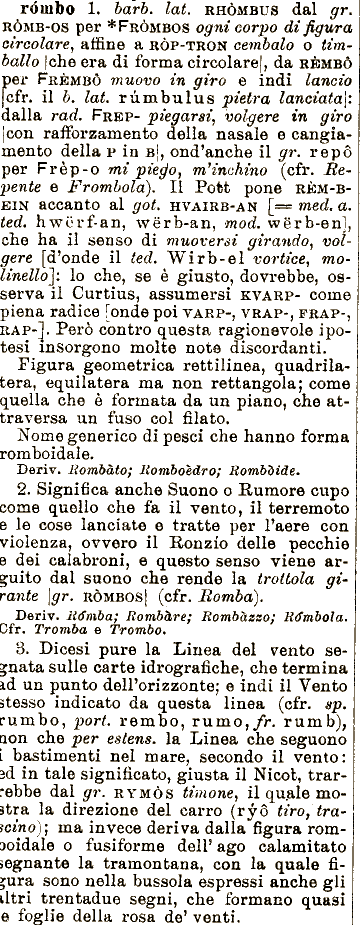 rómbo 1. barb. lat. RHÒMBUS dal gr.
RÒMB-OS per *FRÒMBOS ogni corpo di figura
circolare, affine a RÒP-TRON cembalo o tim-
ballo [che era di forma circolare], da RÈMBÔ
per FRÈMBÔ muovo in giro e indi lancio
[cfr. il b. lat. rúmbulus pietra lanciata]:
dalla rad. FREP- piegarsi, volgere in giro
[con rafforzamento della nasale e cangia-
mento della P in B], ond'anche il gr. repô
per Frèp-o mi piego, m'inchino (cfr. Re-
pente e Frombola). Il Pott pone RÈM-B-
EIN accanto al got. HVAIRB-AN [= med. a.
ted. hwërf-an, wërb-an, mod. wërb-en],
che ha il senso di muoversi girando, vol-
gere [d'onde il ted. Wirb-el vortice, mo-
linello]: lo che, se è giusto, dovrebbe, os-
serva il Curtius, assumersi KVARP- come
piena radice [onde poi VARP-, VRAP-, FRAP-,
RAP-]. Però contro questa ragionevole ipo-
tesi insorgono molte note discordanti.
Figura geometrica rettilinea, quadrila-
tera, equilatera ma non rettangola; come
quella che è formata da un piano, che at-
traversa un fuso col filato.
Nome generico di pesci che hanno forma
romboidale.
Deriv. Rombàto; Romboèdro; Rombòide.
2. Significa anche Suono o Rumore cupo
come quello che fa il vento, il terremoto
e le cose lanciate e tratte per l'aere con
violenza, ovvero il Ronzio delle pecchie
e dei calabroni, e questo senso viene ar-
guito dal suono che rende la trottola gi-
rante [gr. RÒMBOS] (cfr. Romba).
Deriv. Rómba; Rombàre; Rombàzzo; Rómbola.
Cfr. Tromba e Trombo.
3. Dicesi pure la Linea del vento se-
gnata sulle carte idrografiche, che termina
ad un punto dell'orizzonte; e indi il Vento
stesso indicato da questa linea (cfr. sp.
rumbo, port. rembo, rumo, fr. rumb),
non che per estens. la Linea che seguono
i bastimenti nel mare, secondo il vento:
ed in tale significato, giusta il Nicot, trar-
rebbe dal gr. RYMÒS timone, il quale mo-
stra la direzione del carro (rýô tiro, tra-
scino); ma invece deriva dalla figura rom-
boidale o fusiforme dell'ago calamitato
segnante la tramontana, con la quale fi-
gura sono nella bussola espressi anche gli
altri trentadue segni, che formano quasi
le foglie della rosa de' venti.